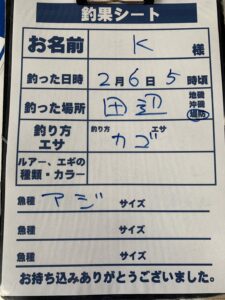 釣果シート
お名前 K 様
釣った日時 2月6日5時頃
釣った場所 田辺 地磯 沖磯 堤防
釣り方 エサ 釣り方 カゴ エサ
ルアー、エギの種類・カラー
魚種 アジ サイズ
魚種 サイズ
魚種 サイズ
お持ち込みありがとうございました。